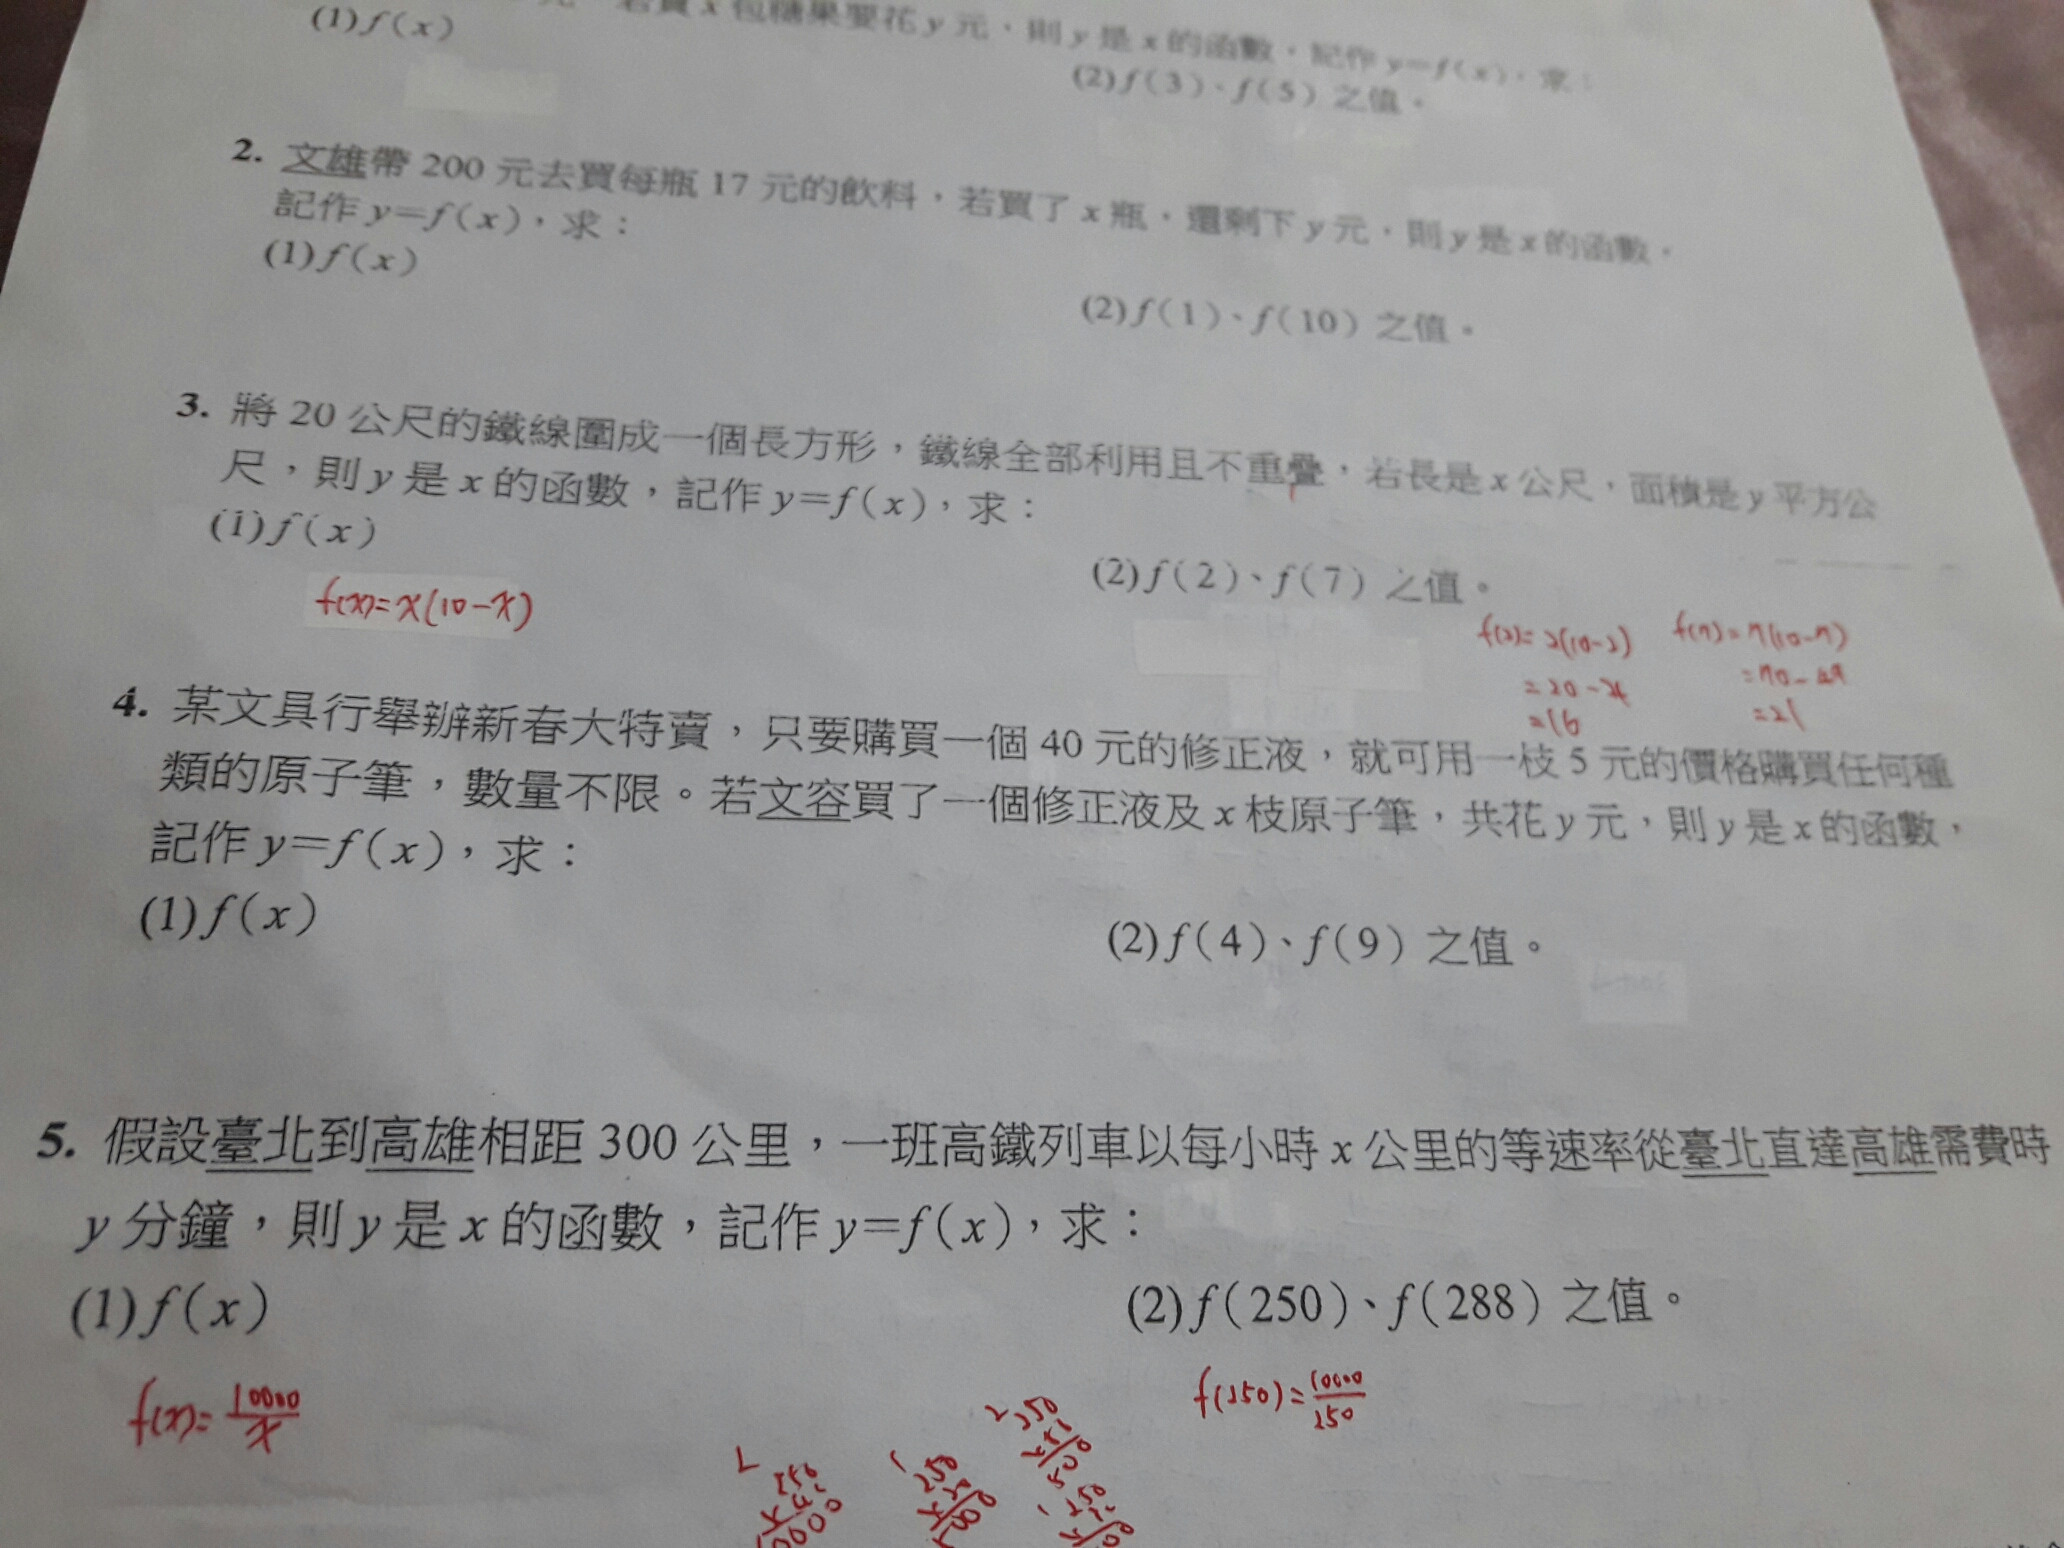 若買 x 包糖果要花 y 元，則 y 是 x 的函數，記作 y=f(x)，求：
(1)f(x)
(2)f(3)、f(5) 之值。
2. 文雄帶 200 元去買每瓶 17 元的飲料，若買了 x 瓶，還剩下 y 元，則 y 是 x 的函數，
記作 y=f(x)，求：
(1)f(x)
(2)f(1)、f(10) 之值。
3. 將 20 公尺的鐵線圍成一個長方形，鐵線全部利用且不重疊，若長是 x 公尺，面積是 y 平方公
尺，則 y 是 x 的函數，記作 y=f(x)，求：
(1)f(x)
(2)f(2)、f(7) 之值。
f(x)=x(10-x)
f(2)=2(10-2) f(7)=7(10-7)
=20-4 =70-49
=16 =21
4. 某文具行舉辦新春大特賣，只要購買一個 40 元的修正液，就可用一枝 5 元的價格購買任何種
類的原子筆，數量不限。若文容買了一個修正液及 x 枝原子筆，共花 y 元，則 y 是 x 的函數，
記作 y=f(x)，求：
(1)f(x)
(2)f(4)、f(9) 之值。
5. 假設臺北到高雄相距 300 公里，一班高鐵列車以每小時 x 公里的等速率從臺北直達高雄需費時
y 分鐘，則 y 是 x 的函數，記作 y=f(x)，求：
(1)f(x)
(2)f(250)、f(288) 之值。
f(x)=10000/x
f(250)=10000/250